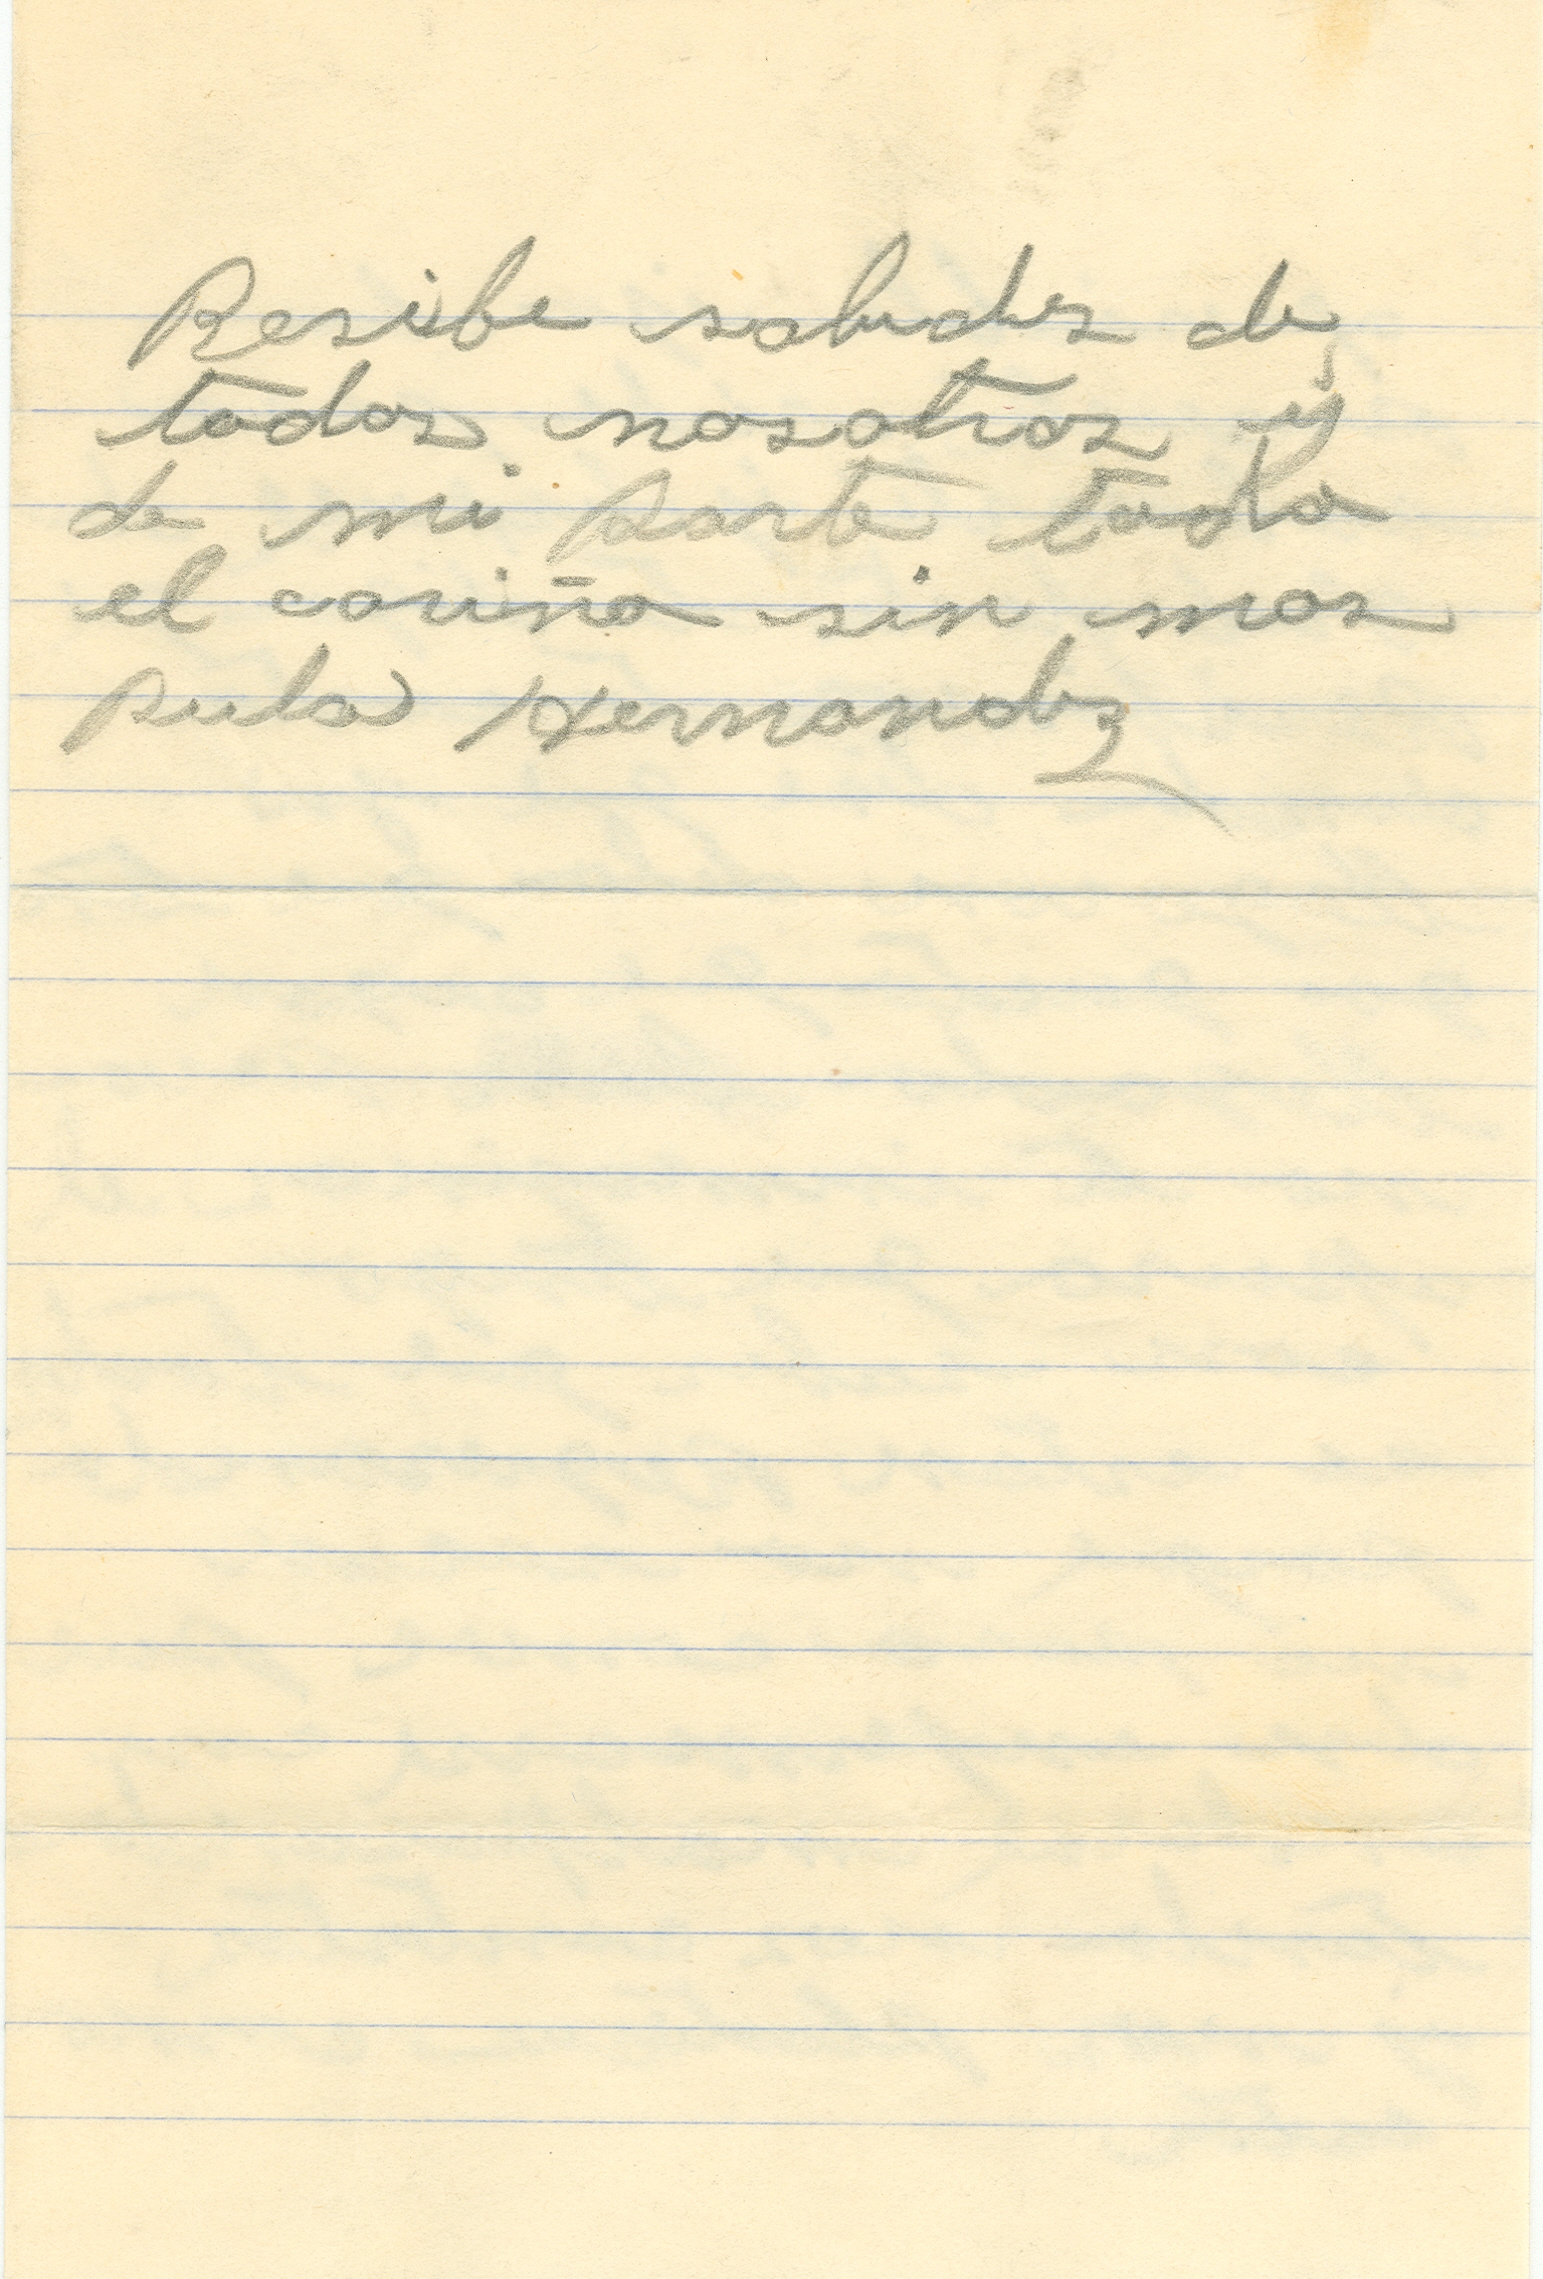 Resibe saludes de
todos nosotros y
de mi parte todo
el cariño sin mas
Pula Hernandez